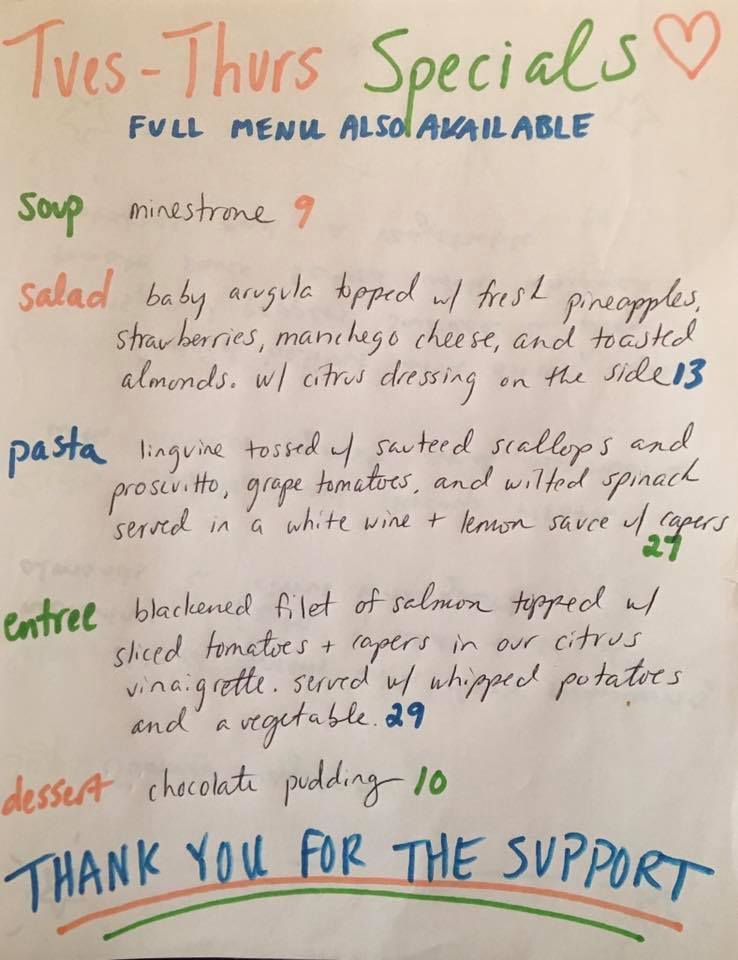 Tues-Thurs Specials
FULL MENU ALSO AVAILABLE
soup minestrone 9
salad baby arugula topped w/ fresh pineapples,
strawberries, manchego cheese, and toasted
almonds. w/ citrus dressing on the side 13
pasta linguine tossed w/ sauteed scallops and
proscuitto, grape tomatoes, and wilted spinach
served in a white wine + lemon sauce w/ capers
27
entree blackened filet of salmon topped w/
sliced tomatoes + capers in our citrus
vinaigrette. served w/ whipped potatoes
and a vegetable. 29
dessert chocolate pudding 10
THANK YOU FOR THE SUPPORT